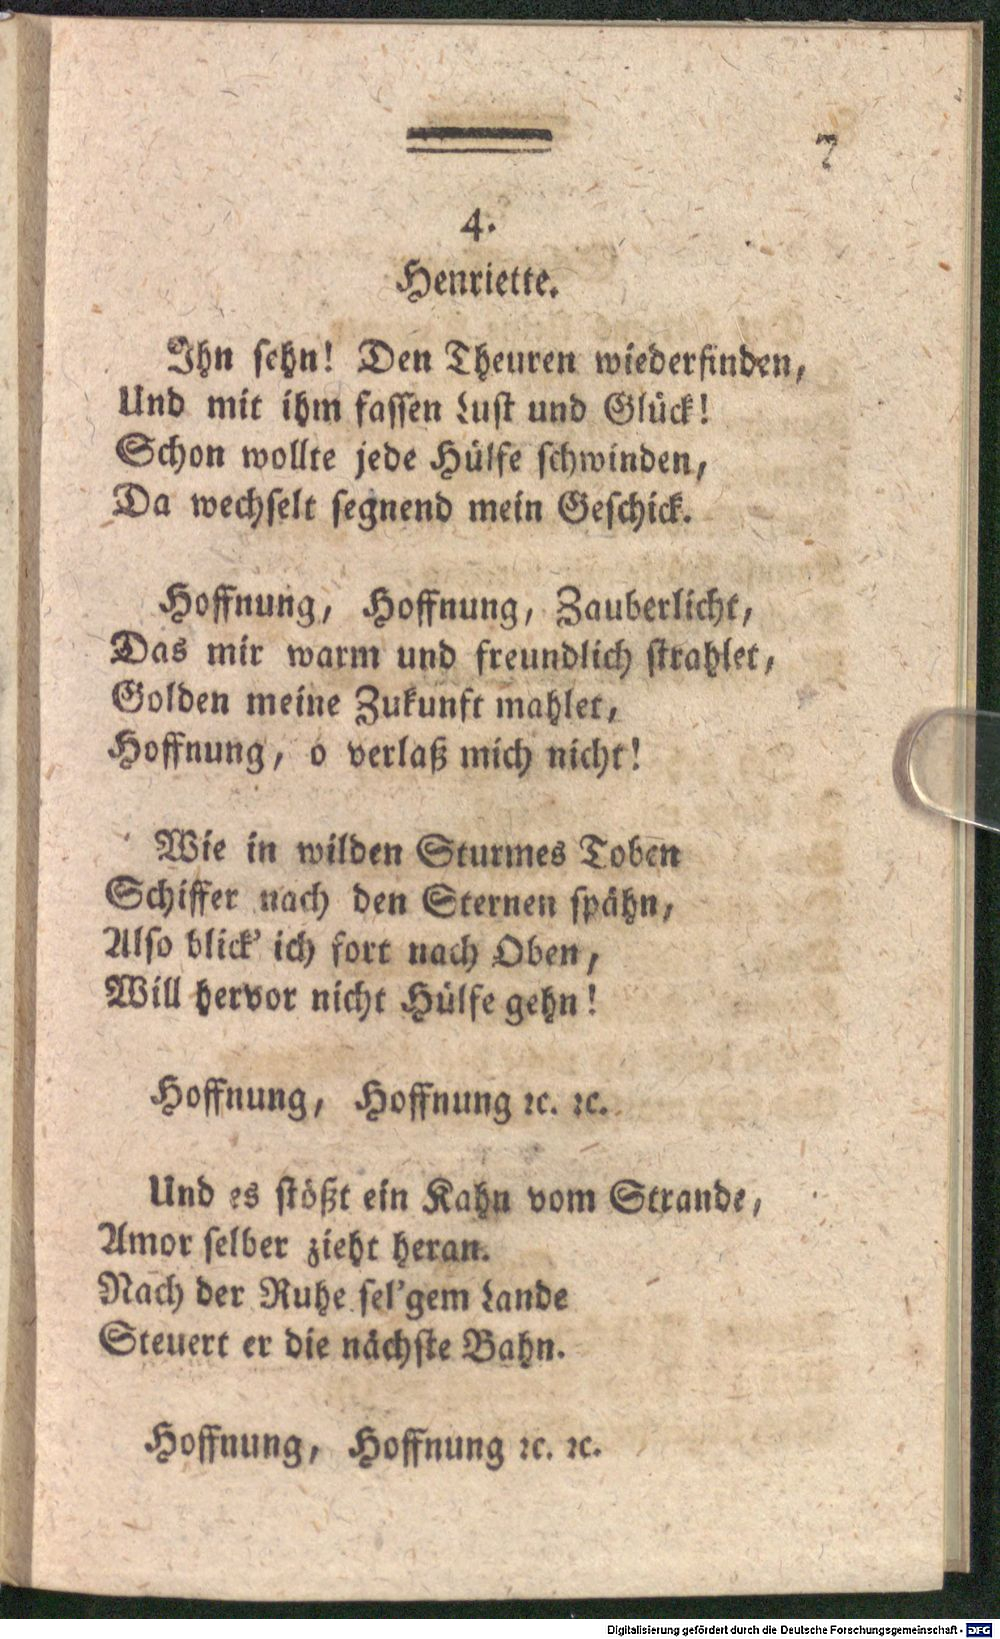 7
4.
Henriette.
Ihn sehn! Den Theuren wiederfinden,
Und mit ihm fassen Lust und Glück!
Schon wollte jede Hülfe schwinden,
Da wechselt segnend mein Geschick.
Hoffnung, Hoffnung, Zauberlicht,
Das mir warm und freundlich strahlet,
Golden meine Zukunft mahlet,
Hoffnung, o verlaß mich nicht!
Wie in wilden Sturmes Toben
Schiffer nach den Sternen spähn,
Also blick' ich fort nach Oben,
Will hervor nicht Hülfe gehn!
Hoffnung, Hoffnung ꝛc. ꝛc.
Und es stößt ein Kahn vom Strande,
Amor selber zieht heran.
Nach der Ruhe sel'gem Lande
Steuert er die nächste Bahn.
Hoffnung, Hoffnung ꝛc. ꝛc.
Digitalisierung gefördert durch die Deutsche Forschungsgemeinschaft - DFG